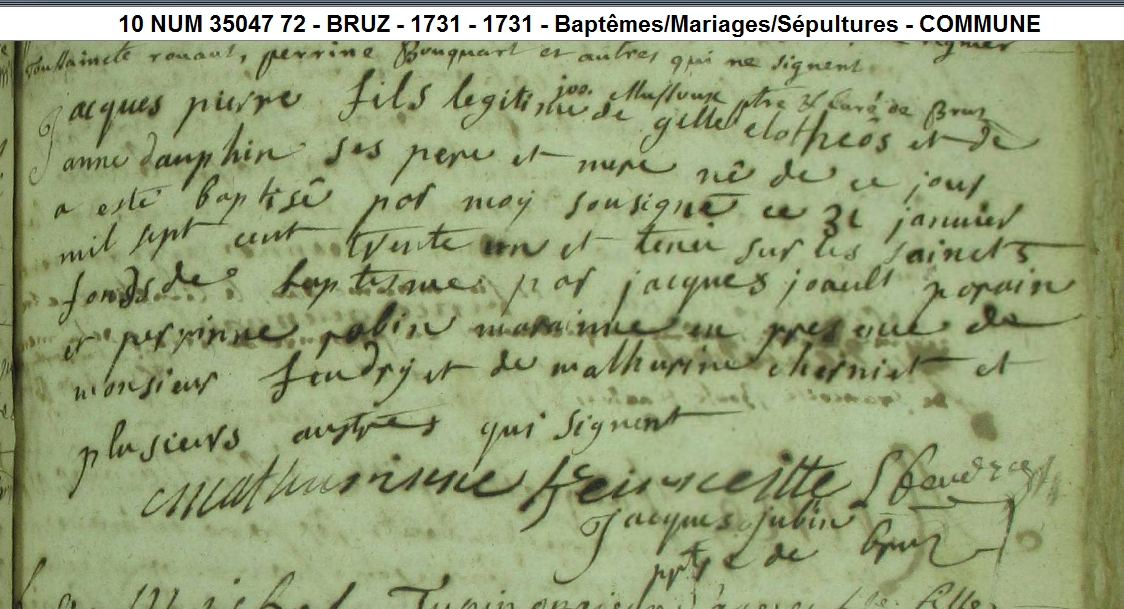 10 NUM 35047 72 - BRUZ - 1731 - 1731 - Baptêmes/Mariages/Sépultures - COMMUNE
Toussaincte rouaut, perrine Bouquart et autres qui ne signent
ptre & curé de Bruz
Jacques pierre fils legitime de gille clotheos et de
anne dauphin ses pere et mere né de ce jour
a esté baptisé par moy sousigné ce 31 janvier
mil sept cent trente un et tenu sur les saincts
fonds de baptesme par jacques joault parain
et perrinne robin marainne en presence de
monsieur foudry et de mathurine et
plusieurs autres qui signent
Mathurinne
Jacques jubin
de bruz